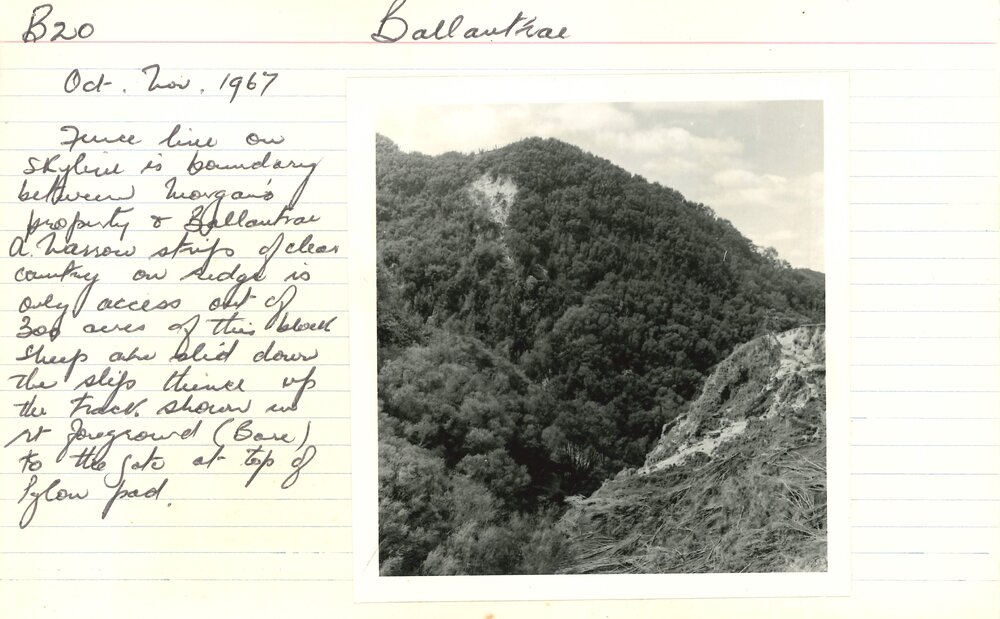 B20
Ballantrae
Oct. Nov. 1967
Fence line on
skyline is boundary
between Morgan's
property & Ballantrae
A. narrow strip of clear
country on ridge is
only access out of
300 acres of this block
Sheep are slid down
the slip thence up
the track shown in
rt foreground (Bare)
to the gate at top of
Pylon pad.